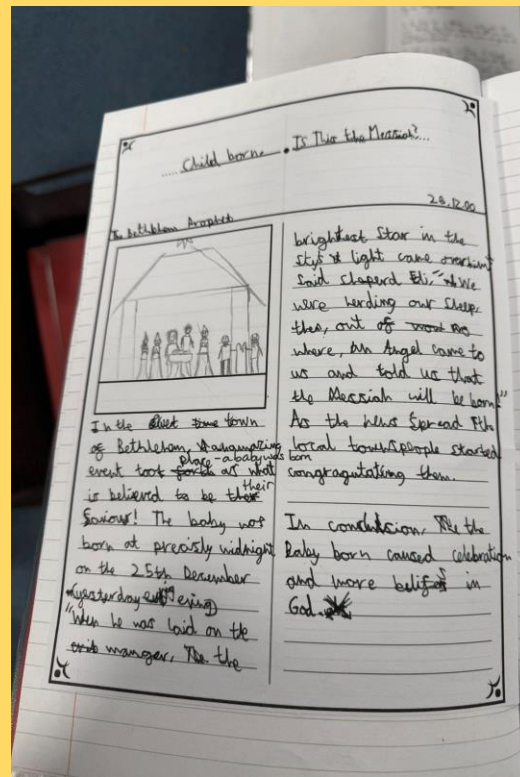 ..... Child born. Is This the Messiah?...
28.12.00
The Bethlehem Prophet
In the quiet town
of Bethlehem, amazing
place - a baby was born
event took as what
their
is believed to be
Saviour! The baby was
born at precisly midnight
on the 25th December
(yesterday evening)
"When he was laid on the
manger, the
brightest star in the
sky's light came
said sheperd Eli, "We
were herding our sheep,
then, out of no
where, an Angel came to
us and told us that
the Messiah will be born."
As the news spread the
local townspeople started
congragutating them.
In conclusion, the
Baby born caused celebration
and more belifes in
God.